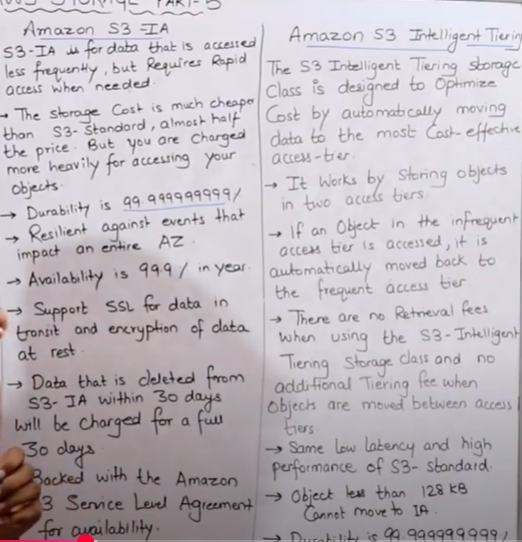 PART-5
Amazon S3-IA
S3-IA is for data that is accessed
less frequently, but Requires Rapid
access when needed.
→ The storage Cost is much cheaper
than S3-Standard, almost half
the price. But you are charged
more heavily for accessing your
objects.
→ Durability is 99.999999999/
→ Resilient against events that
impact an entire AZ
→ Availability is 99.9/ in year.
→ Support SSL for data in
transit and encryption of data
at rest.
→ Data that is deleted from
S3-IA within 30 days
will be charged for a full
30 days.
Backed with the Amazon
3 Service Level Agreement
for availability.
Amazon S3 Intelligent Tiering
The S3 Intelligent Tiering storage
Class is designed to Optimize
Cost by automatically moving
data to the most Cost-effective
access-tier.
→ It Works by Storing objects
in two access tiers.
→ If an Object in the infrequent
access tier is accessed, it is
automatically moved back to
the frequent access tier.
→ There are no Retrieval fees
when using the S3-Intelligent
Tiering Storage class and no
additional Tiering fee when
Objects are moved between access
tiers.
→ Same low latency and high
performance of S3-standard.
→ Object less than 128 KB
Cannot move to IA.
→ Durability is 99.999999999/